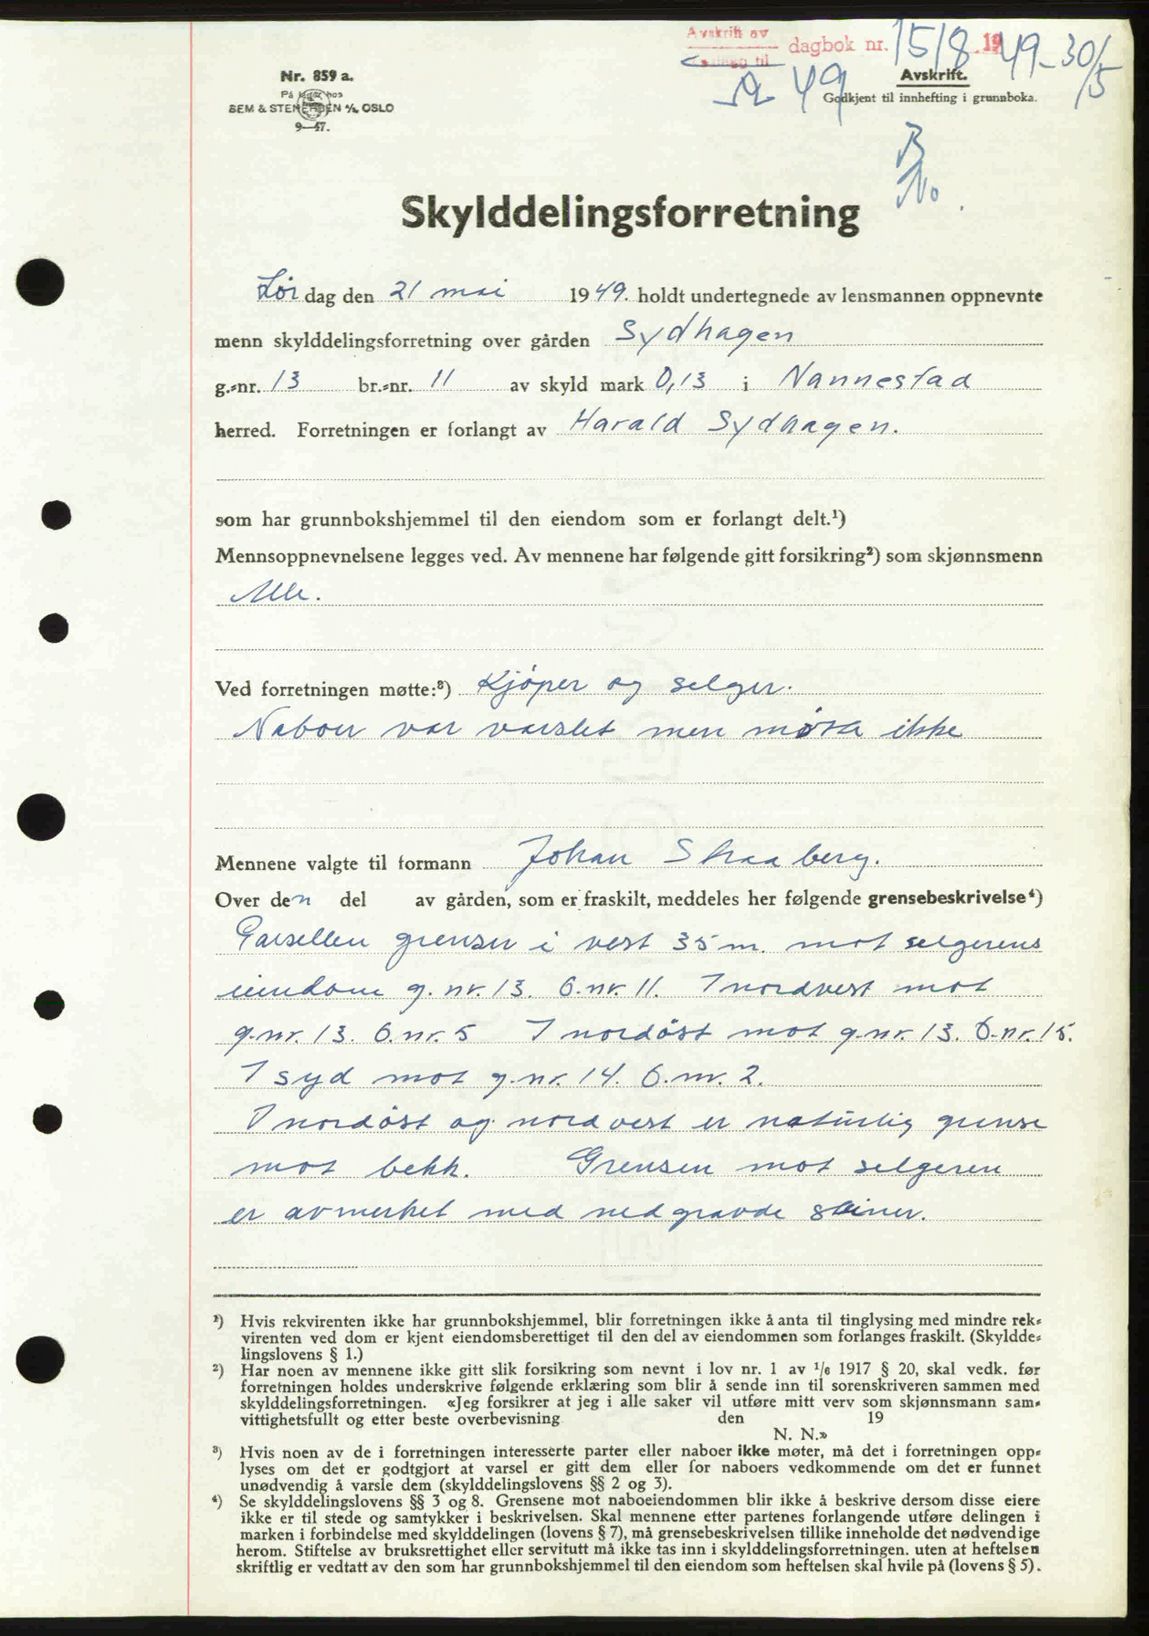 Avskrift av
dagbok nr. 1518 1949-30/5
49
Nr. 859 a.
På lager hos
SEM & STENERSEN A/S, OSLO
9—47.
Avskrift.
Godkjent til innhefting i grunnboka.
B
No.
Skylddelingsforretning
Lørdag den 21 mai 1949. holdt undertegnede av lensmannen oppnevnte
menn skylddelingsforretning over gården Sydhagen
g.-nr. 13 br.-nr. 11 av skyld mark 0,13 i Nannestad
herred. Forretningen er forlangt av Harald Sydhagen.
som har grunnbokshjemmel til den eiendom som er forlangt delt.¹)
Mennsoppnevnelsene legges ved. Av mennene har følgende gitt forsikring²) som skjønnsmenn
Alle.
Ved forretningen møtte:³) Kjöper og selger.
Naboer var varslet men møtte ikke
Mennene valgte til formann Johan Straaberg.
Over den del av gården, som er fraskilt, meddeles her følgende grensebeskrivelse⁴)
Parsellen grenser i vest 35 m. mot selgerens
eiendom g. nr. 13. b. nr. 11. I nordvest mot
g. nr. 13. b. nr. 5 I nordöst mot g. nr. 13. b. nr. 15.
I syd mot g. nr. 14. b. nr. 2.
I nordöst og nordvest er naturlig grense
mot bekk. Grensen mot selgeren
er avmerket med nedgravde steiner.
¹) Hvis rekvirenten ikke har grunnbokshjemmel, blir forretningen ikke å anta til tinglysing med mindre rek-
virenten ved dom er kjent eiendomsberettiget til den del av eiendommen som forlanges fraskilt. (Skyldde-
lingslovens § 1.)
²) Har noen av mennene ikke gitt slik forsikring som nevnt i lov nr. 1 av 1/6 1917 § 20, skal vedk. før
forretningen holdes underskrive følgende erklæring som blir å sende inn til sorenskriveren sammen med
skylddelingsforretningen. «Jeg forsikrer at jeg i alle saker vil utføre mitt verv som skjønnsmann sam-
vittighetsfullt og etter beste overbevisning den 19
N. N.»
³) Hvis noen av de i forretningen interesserte parter eller naboer ikke møter, må det i forretningen opp-
lyses om det er godtgjort at varsel er gitt dem eller for naboers vedkommende om det er funnet
unødvendig å varsle dem (skylddelingslovens §§ 2 og 3).
⁴) Se skylddelingslovens §§ 3 og 8. Grensene mot naboeiendommen blir ikke å beskrive dersom disse eiere
ikke er til stede og samtykker i beskrivelsen. Skal mennene etter partenes forlangende utføre delingen i
marken i forbindelse med skylddelingen (lovens § 7), må grensebeskrivelsen tillike inneholde det nødvendige
herom. Stiftelse av bruksrettighet eller servitutt må ikke tas inn i skylddelingsforretningen. uten at heftelsen
skriftlig er vedtatt av den som har grunnbokshjemmel til den eiendom som heftelsen skal hvile på (lovens § 5).